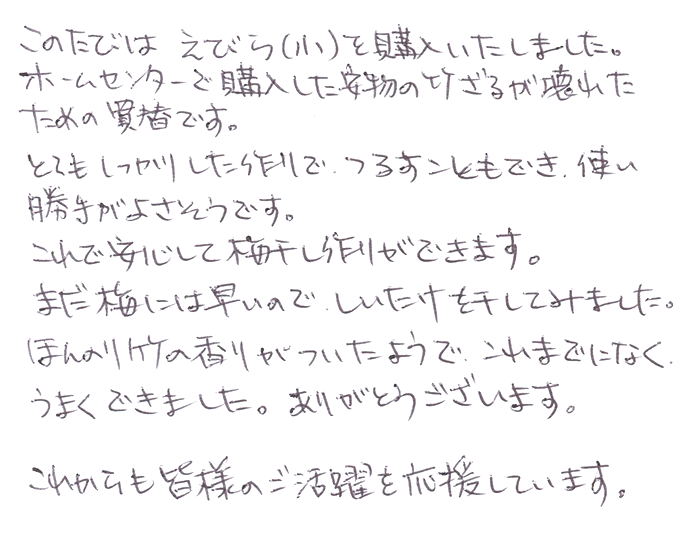 このたびは えびら(小)を購入いたしました。
ホームセンターで購入した安物の竹ざるが壊れた
ための買替です。
とてもしっかりした作りで、つるすこともでき、使い
勝手がよさそうです。
これで安心して梅干し作りができます。
まだ梅には早いので、しいたけを干してみました。
ほんのり竹の香りがついたようで、これまでになく、
うまくできました。ありがとうございます。
これからも皆様のご活躍を応援しています。